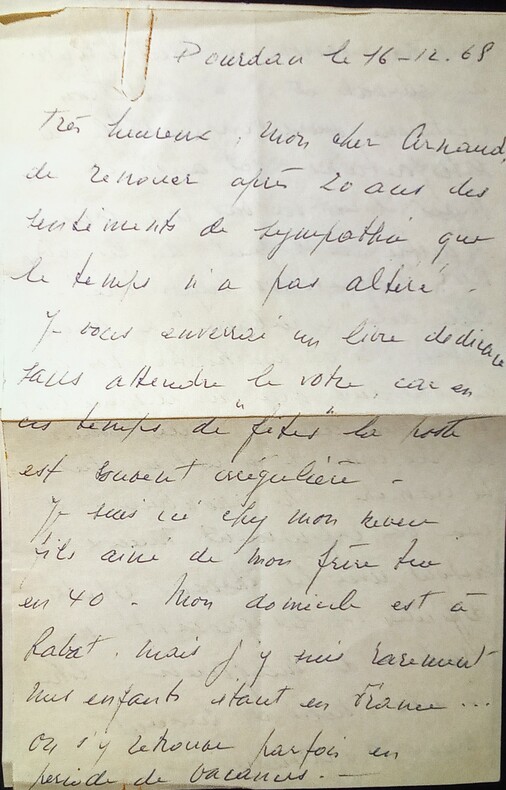 Dourdan le 16-12.68
Très heureux, mon cher Arnaud,
de renouer après 20 ans des
sentiments de sympathie que
le temps n'a pas altéré.
Je vous enverrai un livre dédicacé
sans attendre le votre, car en
ces temps de "fêtes" la poste
est souvent irrégulière -
Je suis ici chez mon neveu
fils ainé de mon frère tué
en 40 - Mon domicile est à
Rabat. mais j'y suis rarement
mes enfants étant en France...
on s'y retrouve parfois en
période de vacances. -